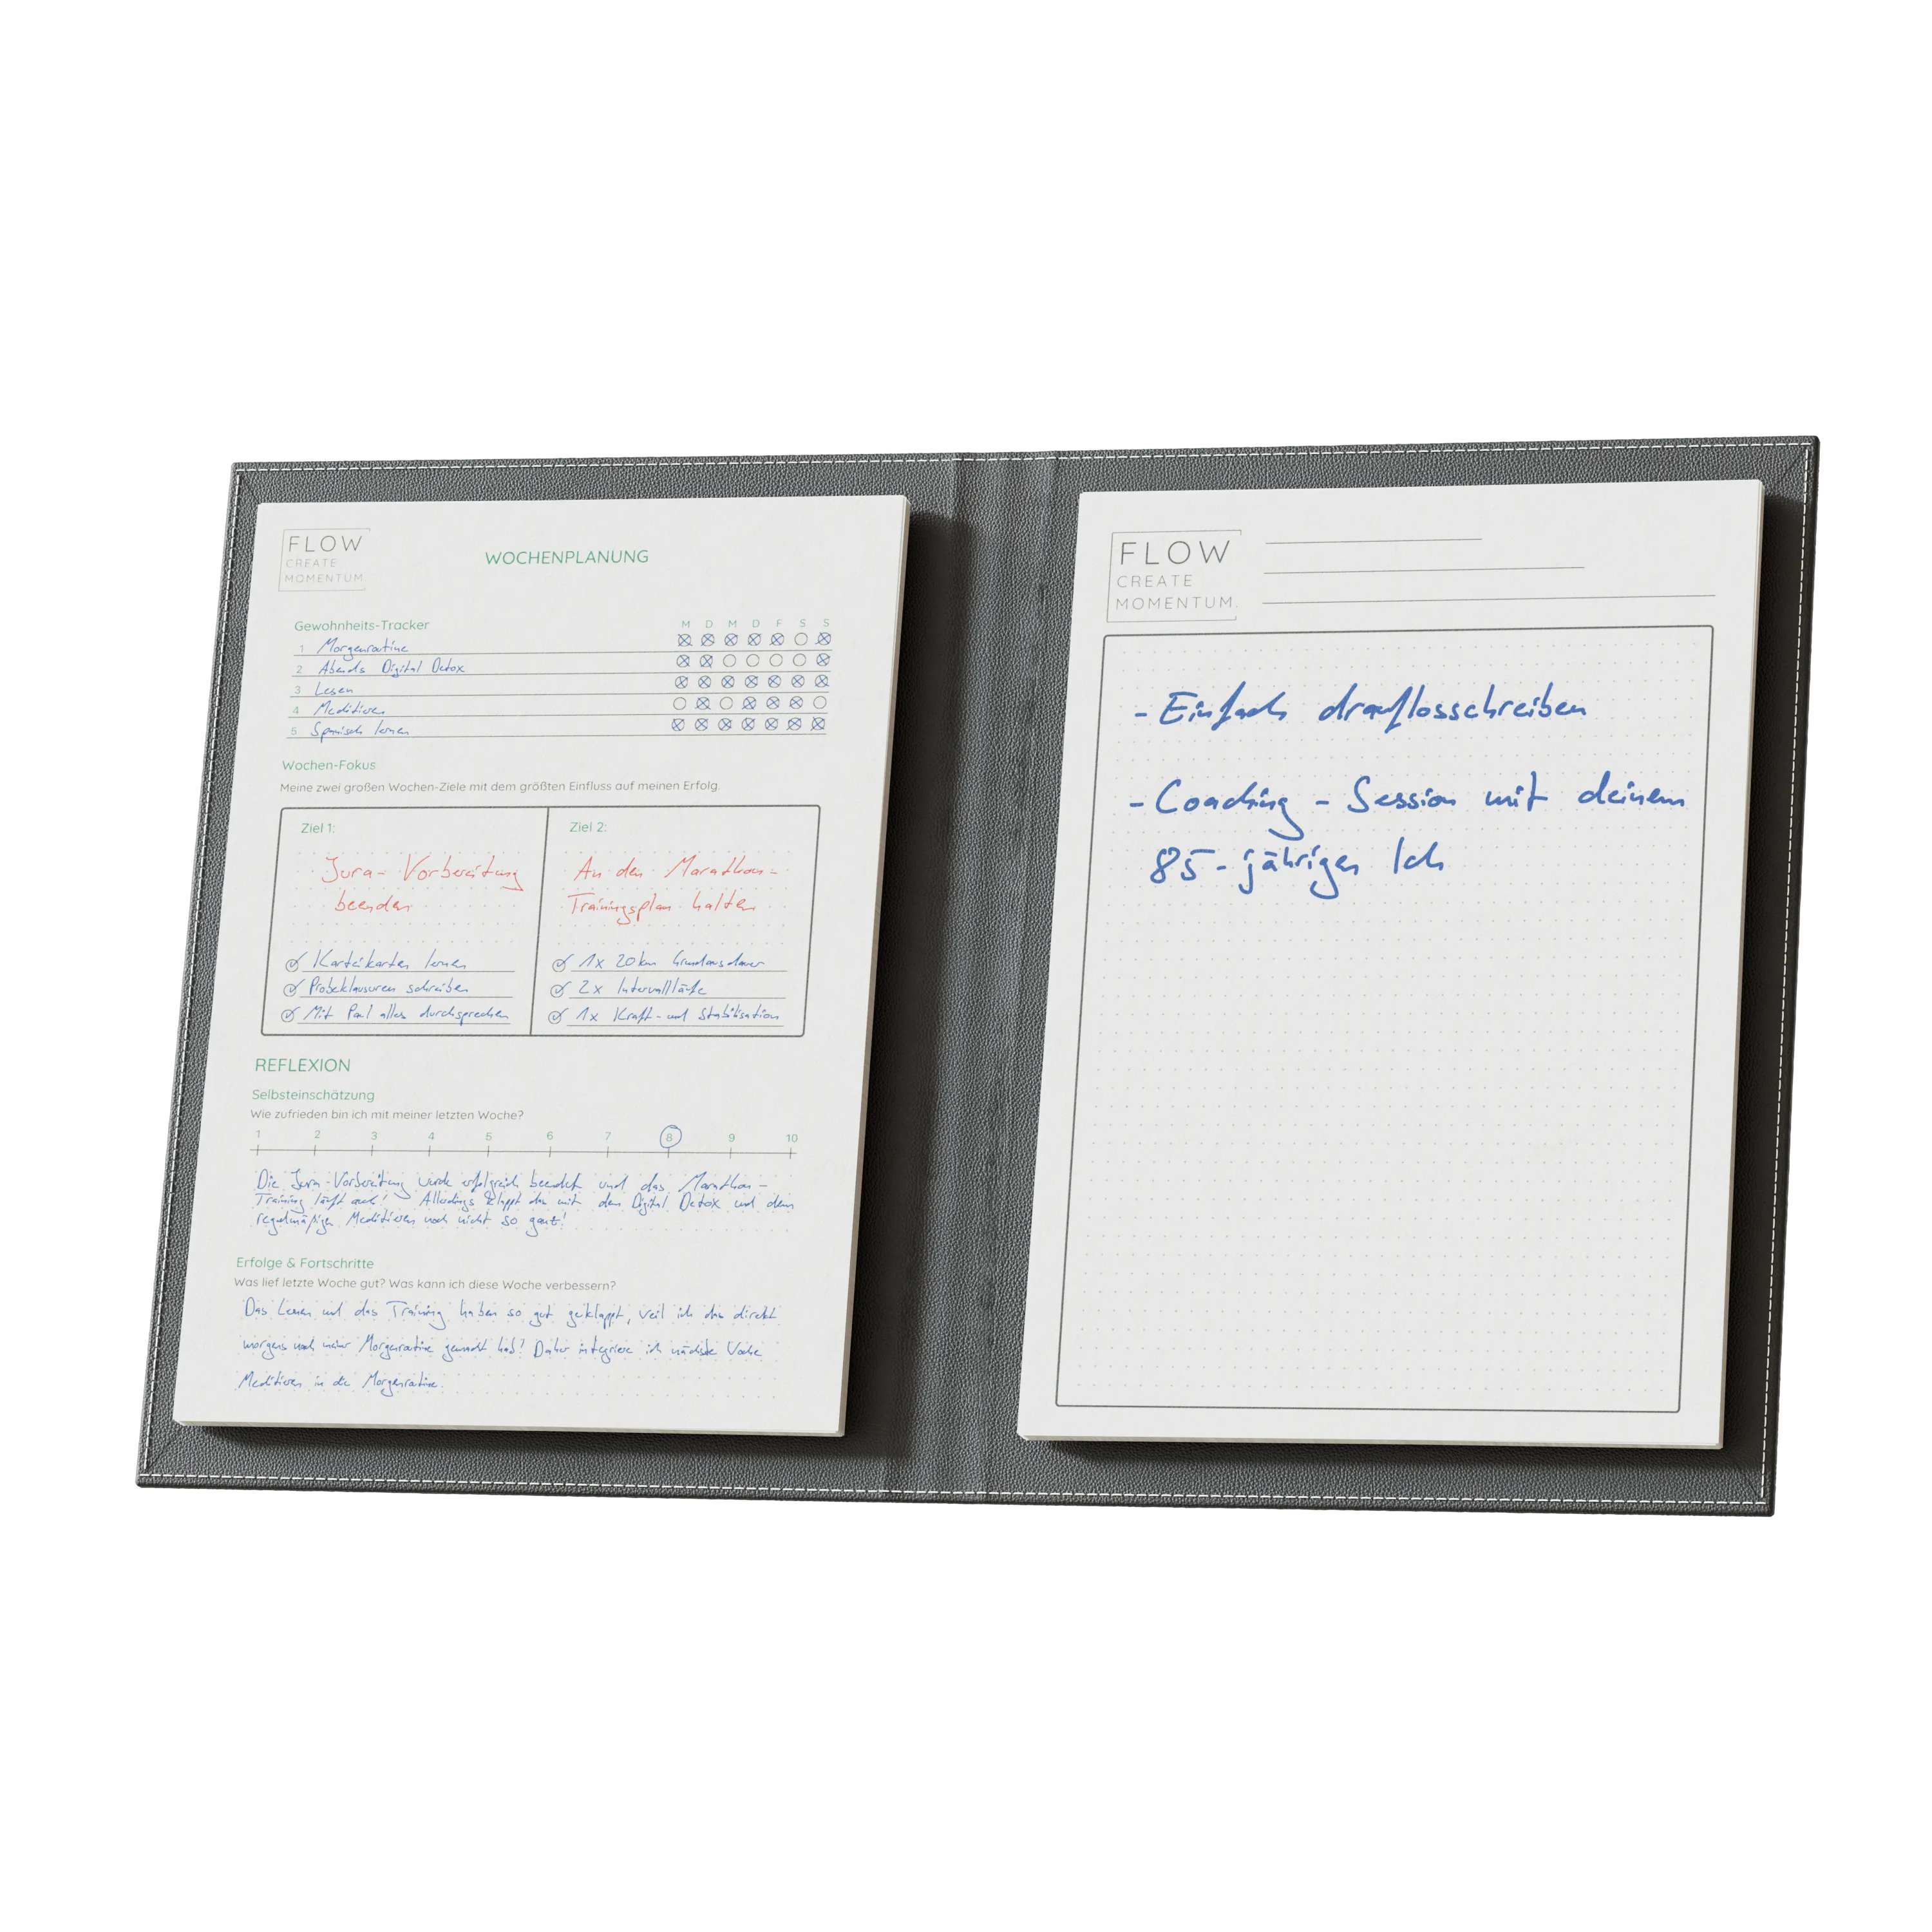 FLOW
CREATE
MOMENTUM.
WOCHENPLANUNG
Gewohnheits-Tracker M D M D F S S
1 Morgenroutine
2 Abends Digital Detox
3 Lesen
4 Meditieren
5 Spanisch lernen
Wochen-Fokus
Meine zwei großen Wochen-Ziele mit dem größten Einfluss auf meinen Erfolg.
Ziel 1:
Jura-Vorbereitung
beenden
Karteikarten lernen
Probeklausuren schreiben
Mit Paul alles durchsprechen
Ziel 2:
An den Marathon-
Trainingsplan halten
1x 20km Grundausdauer
2x Intervallläufe
1x Kraft- und Stabilisation
REFLEXION
Selbsteinschätzung
Wie zufrieden bin ich mit meiner letzten Woche?
1 2 3 4 5 6 7 8 9 10
Die Jura-Vorbereitung wurde erfolgreich beendet und das Marathon-
Training läuft auch! Allerdings klappt das mit dem Digital Detox und dem
regelmäßigen Meditieren noch nicht so ganz!
Erfolge & Fortschritte
Was lief letzte Woche gut? Was kann ich diese Woche verbessern?
Das Lernen und das Training haben so gut geklappt, weil ich das direkt
morgens nach meiner Morgenroutine gemacht hab! Daher integriere ich nächste Woche
Meditieren in die Morgenroutine.
FLOW
CREATE
MOMENTUM.
- Einfach drauflosschreiben
- Coaching - Session mit deinem
85-jährigen Ich